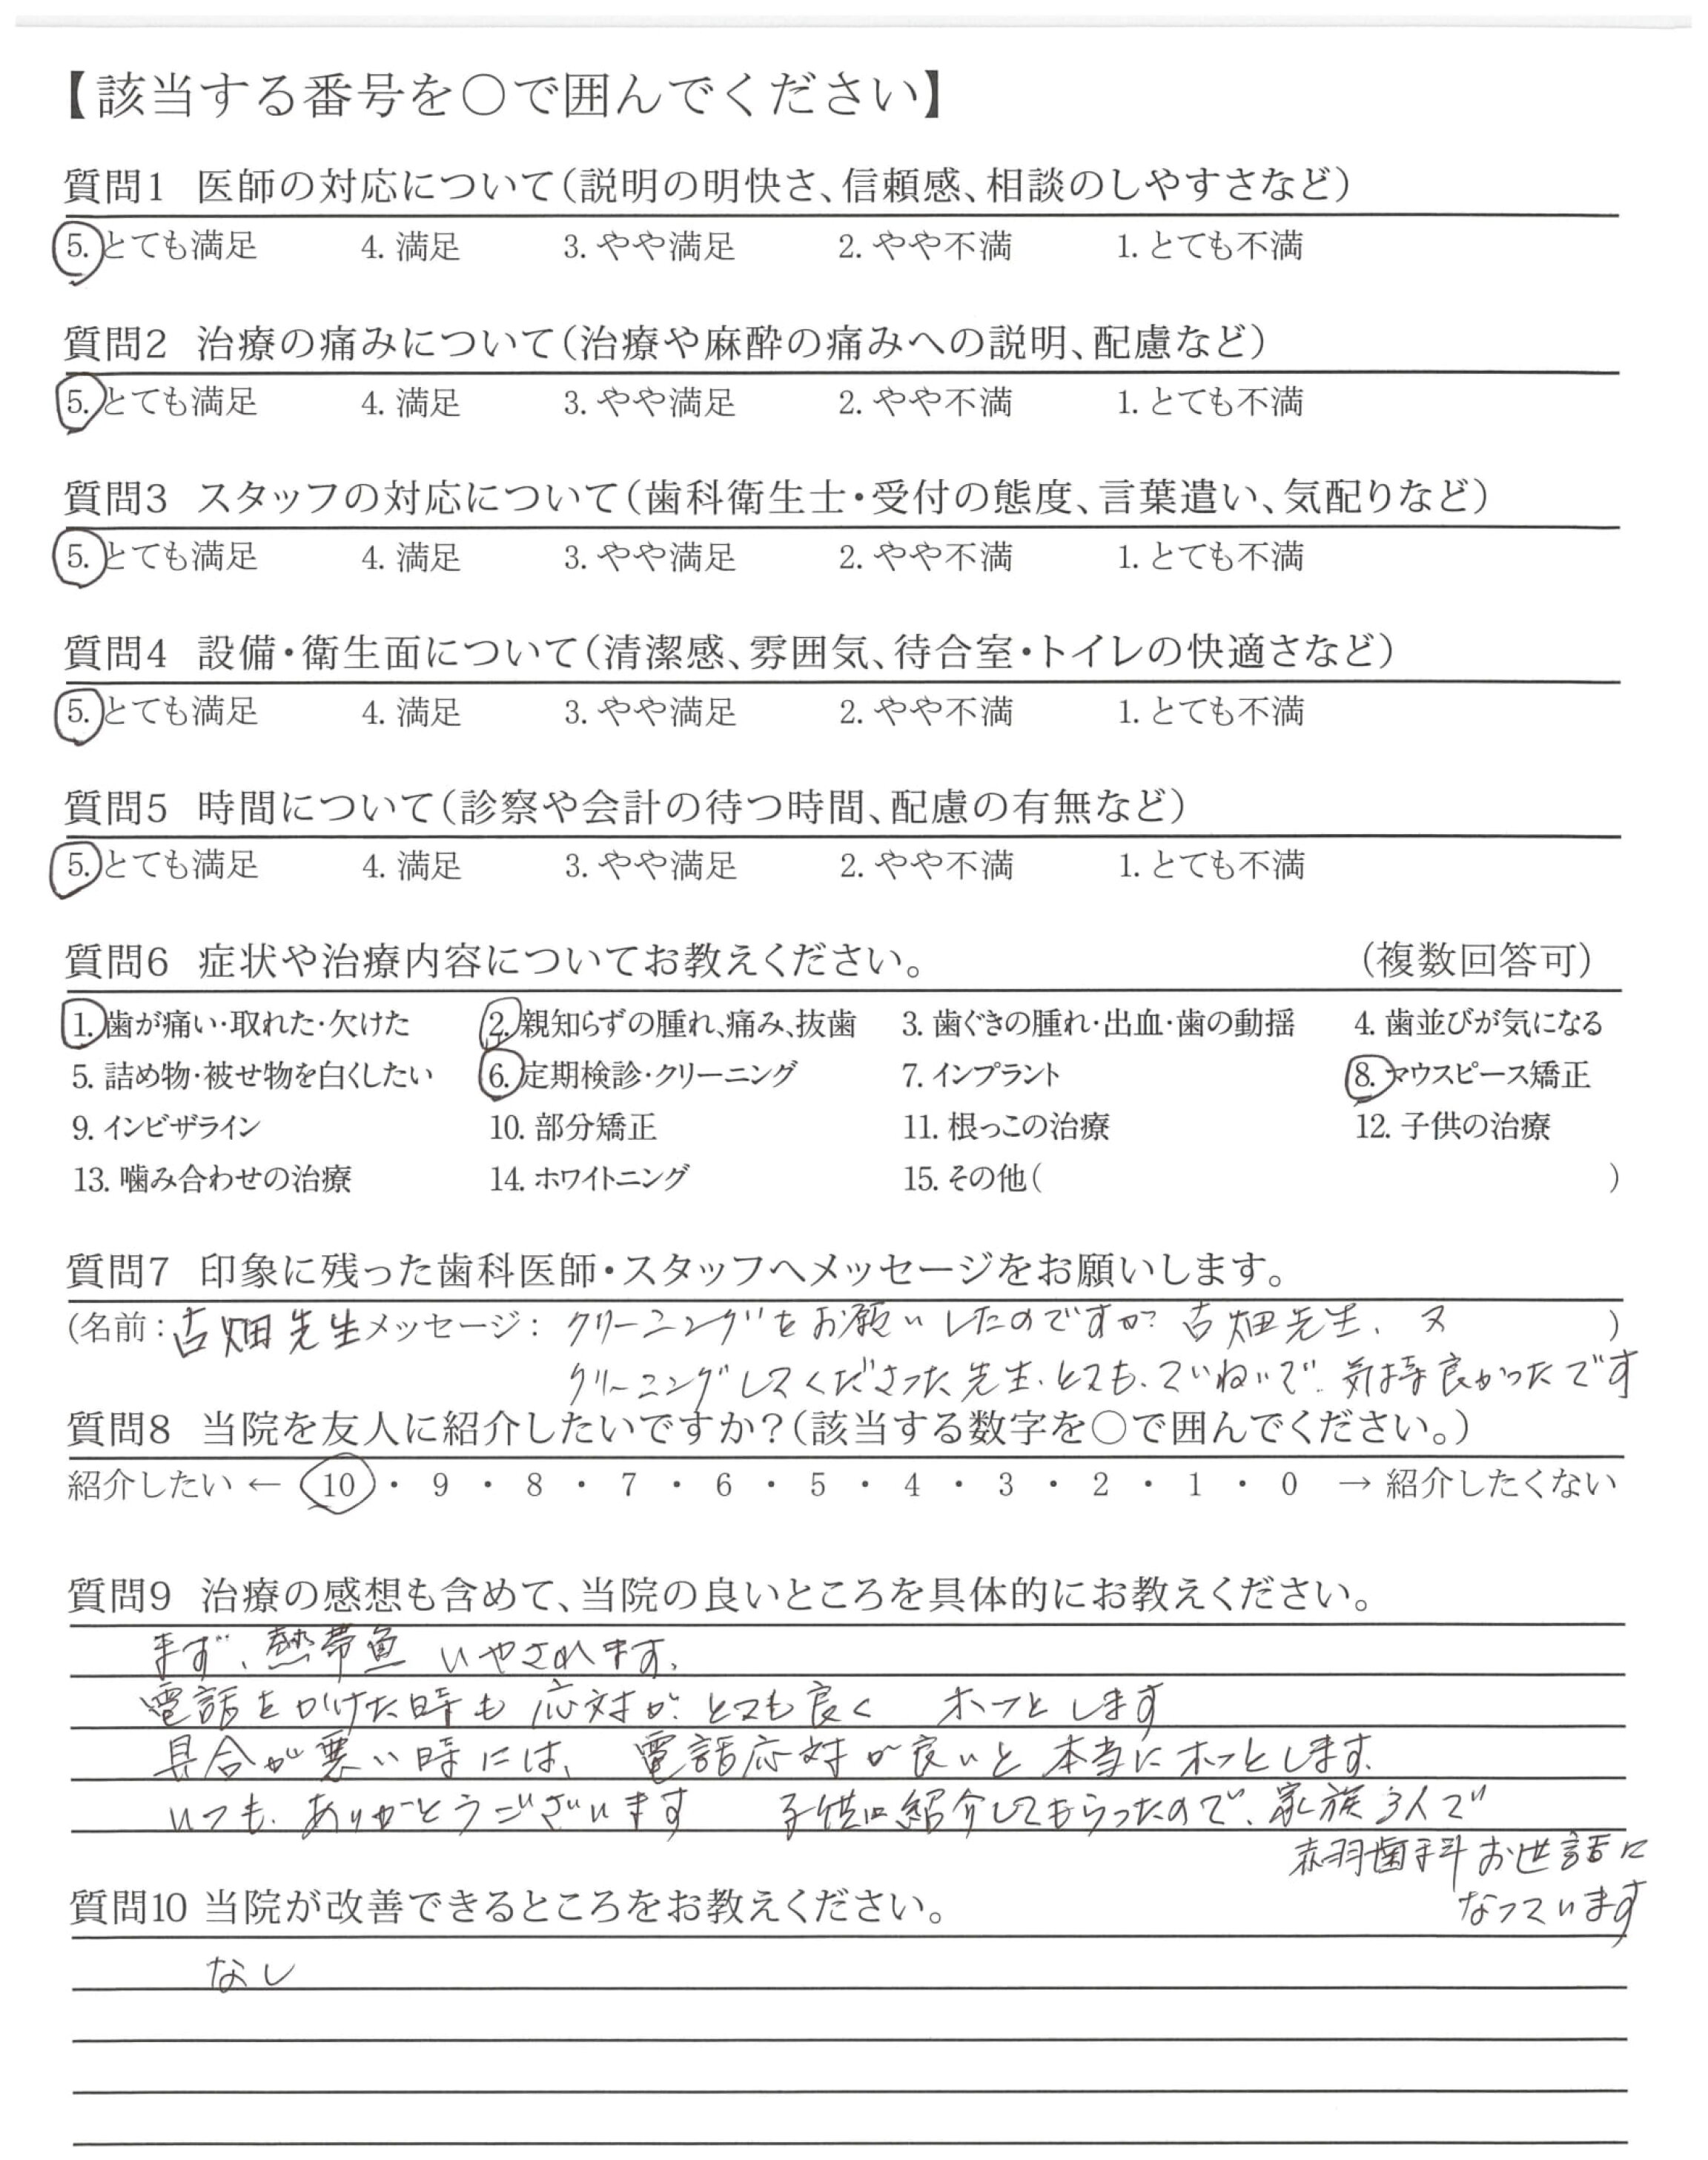 【該当する番号を〇で囲んでください】
質問1 医師の対応について(説明の明快さ、信頼感、相談のしやすさなど)
5. とても満足 4. 満足 3. やや満足 2. やや不満 1. とても不満
質問2 治療の痛みについて(治療や麻酔の痛みへの説明、配慮など)
5. とても満足 4. 満足 3. やや満足 2. やや不満 1. とても不満
質問3 スタッフの対応について(歯科衛生士・受付の態度、言葉遣い、気配りなど)
5. とても満足 4. 満足 3. やや満足 2. やや不満 1. とても不満
質問4 設備・衛生面について(清潔感、雰囲気、待合室・トイレの快適さなど)
5. とても満足 4. 満足 3. やや満足 2. やや不満 1. とても不満
質問5 時間について(診察や会計の待つ時間、配慮の有無など)
5. とても満足 4. 満足 3. やや満足 2. やや不満 1. とても不満
質問6 症状や治療内容についてお教えください。 (複数回答可)
1. 歯が痛い・取れた・欠けた 2. 親知らずの腫れ、痛み、抜歯 3. 歯ぐきの腫れ・出血・歯の動揺 4. 歯並びが気になる
5. 詰め物・被せ物を白くしたい 6. 定期検診・クリーニング 7. インプラント 8. マウスピース矯正
9. インビザライン 10. 部分矯正 11. 根っこの治療 12. 子供の治療
13. 噛み合わせの治療 14. ホワイトニング 15. その他( )
質問7 印象に残った歯科医師・スタッフへメッセージをお願いします。
(名前:古畑先生 メッセージ: クリーニングをお願いしたのですが 古畑先生、又 )
クリーニングしてくださった先生、とても、ていねいで、気持良かったです
質問8 当院を友人に紹介したいですか?(該当する数字を〇で囲んでください。)
紹介したい ← 10 ・ 9 ・ 8 ・ 7 ・ 6 ・ 5 ・ 4 ・ 3 ・ 2 ・ 1 ・ 0 → 紹介したくない
質問9 治療の感想も含めて、当院の良いところを具体的にお教えください。
まず、熱帯魚 いやされます。
電話をかけた時も 応対が とても良く ホッとします
具合が悪い時には、 電話応対が良いと 本当にホッとします。
いつも、ありがとうございます 子供に紹介してもらったので、家族3人で
赤羽歯科お世話に
なっています
質問10 当院が改善できるところをお教えください。
なし